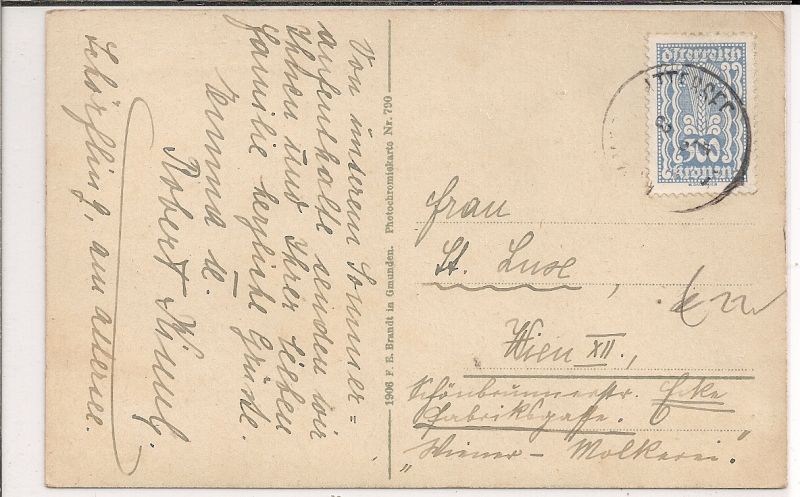 Von unserem Sommer=
aufenthalte senden wir
Ihnen und Ihrer lieben
Familie herzliche Grüße.
Emma u.
Robert
Schörfling, am Attersee.
1906 F. E. Brandt in Gmunden. Photochromiekarte Nr. 790
österreich
500
kronen
Frau
St. Luse,
Wien XII.,
Schönbrunnerstr. Ecke
Fabriksgasse. 6
„Wiener - Molkerei."